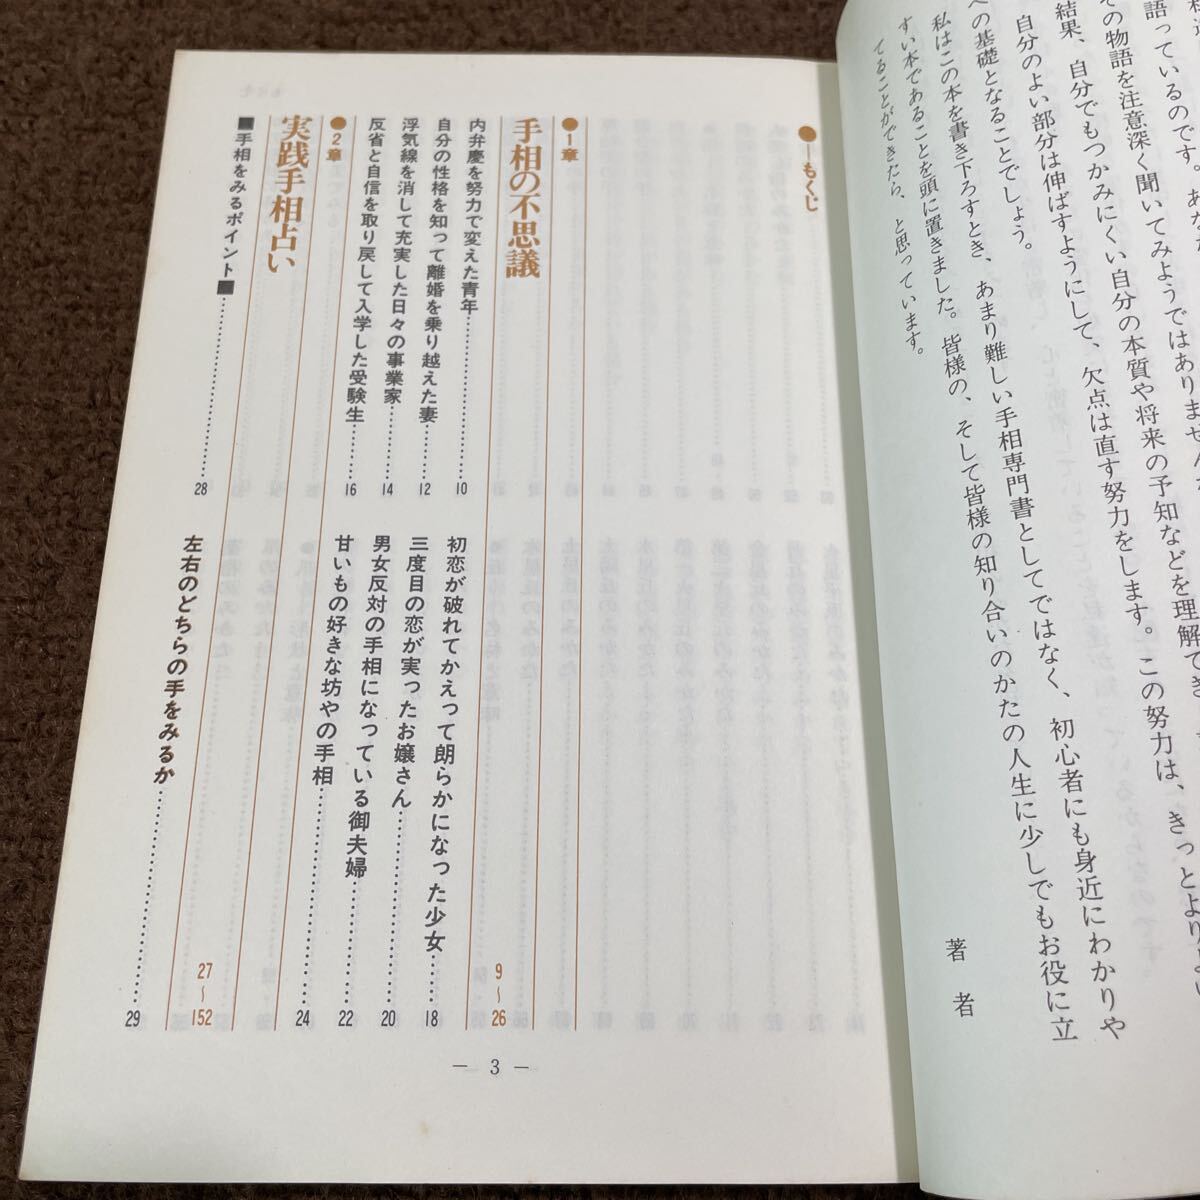 語っているのです。
その物語を注意深く聞いてみようではありませんか
結果、自分でもつかみにくい自分の本質や将来の予知などを理解でき
自分のよい部分は伸ばすようにして、欠点は直す努力をします。この努力は、きっとより
への基礎となることでしょう。
私はこの本を書き下ろすとき、あまり難しい手相専門書としてではなく、初心者にも身近にわかりや
すい本であることを頭に置きました。皆様の、そして皆様の知り合いのかたの人生に少しでもお役に立
てることができたら、と思っています。
著者
●—もくじ
●1章
手相の不思議
9〜26
内弁慶を努力で変えた青年……10
自分の性格を知って離婚を乗り越えた妻……12
浮気線を消して充実した日々の事業家……14
反省と自信を取り戻して入学した受験生……16
初恋が破れてかえって朗らかになった少女……18
三度目の恋が実ったお嬢さん……20
男女反対の手相になっている御夫婦……22
甘いもの好きな坊やの手相……24
●2章
実践手相占い
27〜152
■手相をみるポイント■……28
左右のどちらの手をみるか……29
— 3 —